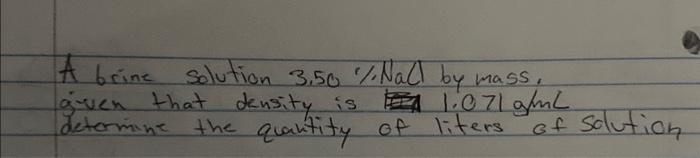 A brine solution 3.50 % NaCl by mass.
given that density is 1.071 g/mL
determine the quantity of liters of solution